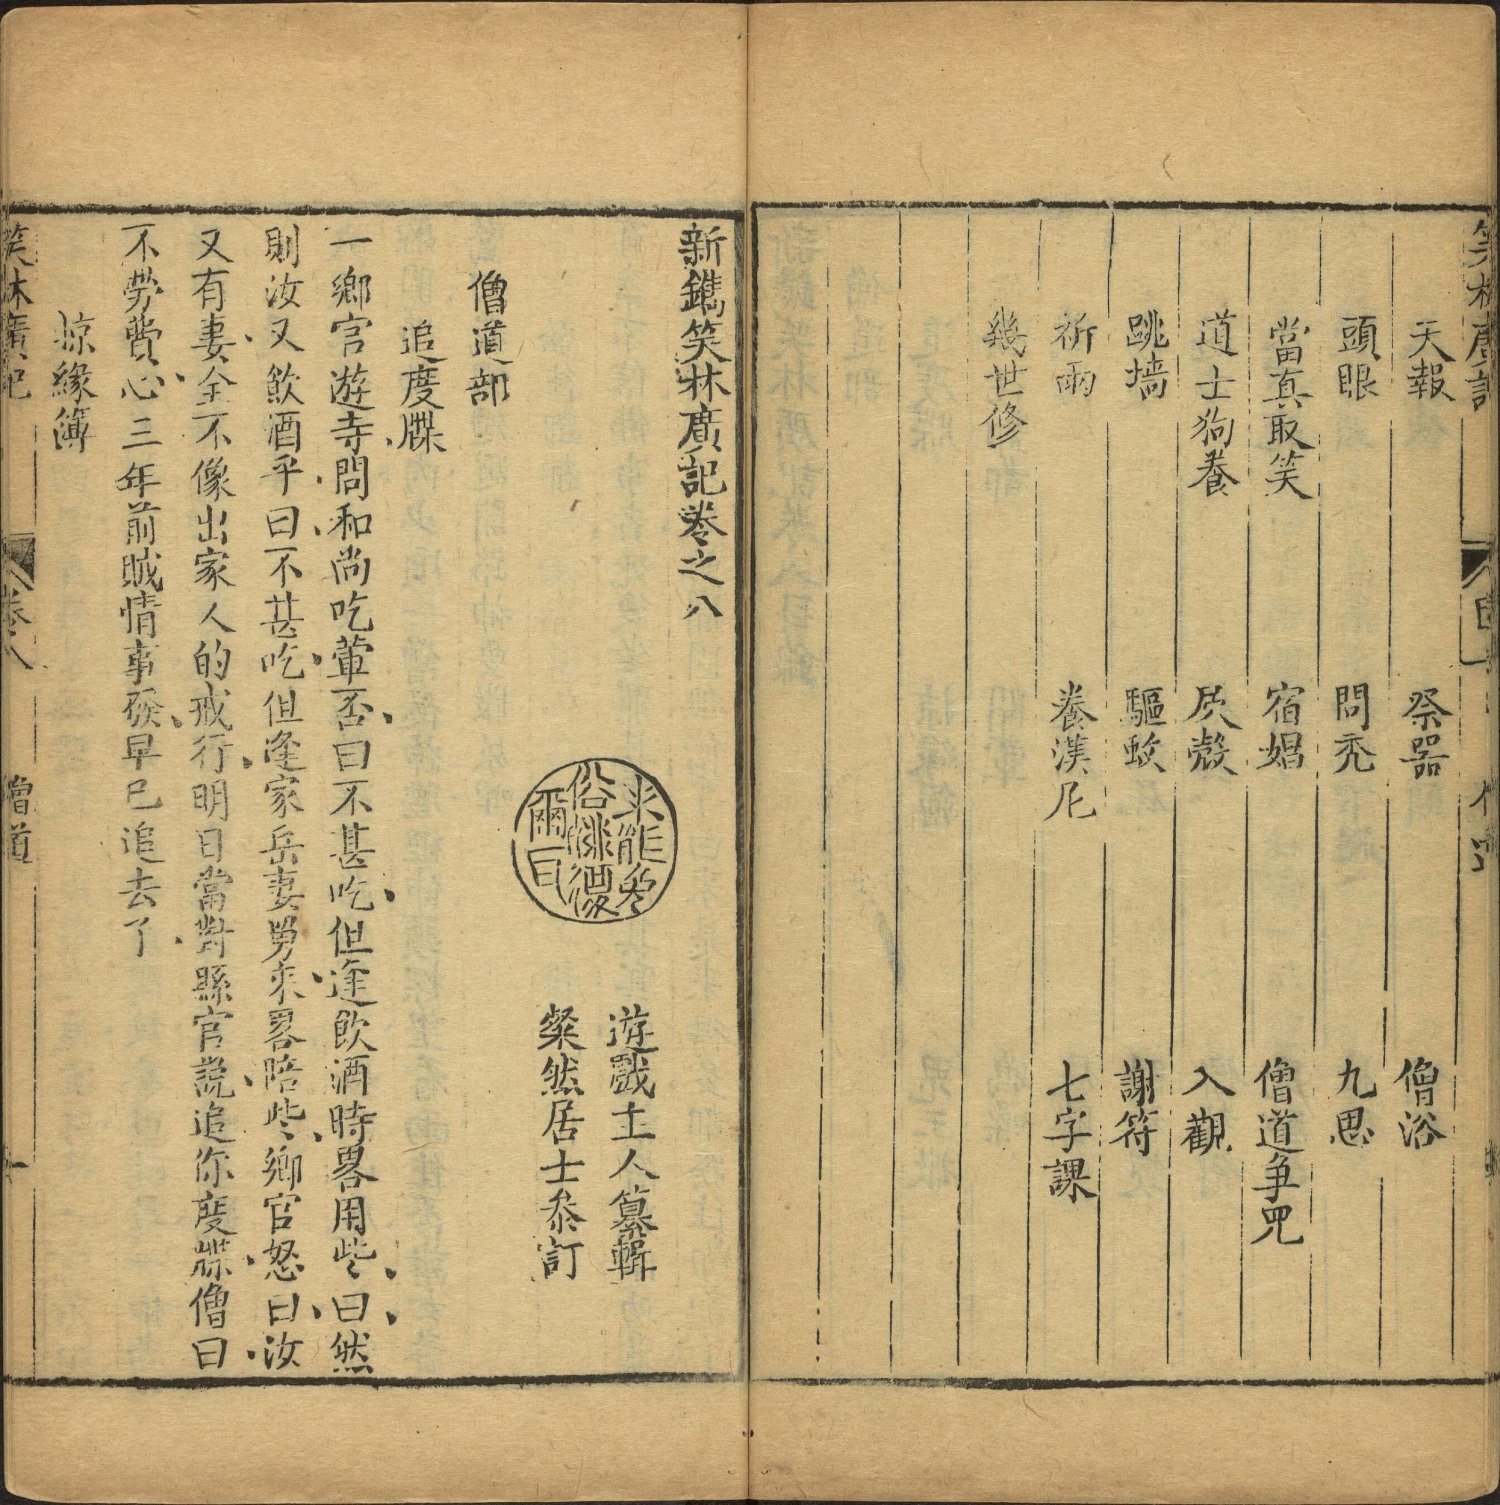 天報 祭器 僧浴
頭眼 問禿 九思
當真取笑 宿娼 僧道争兕
道士狗養 屄殼 入觀
跳墙 驅蚊 謝符
祈雨 養漢尼 七字課
幾世修
新鐫笑林廣記卷之八
遊戲主人纂輯
粲然居士叅訂
僧道部
追度牒
一鄉宦遊寺問和尚吃葷否曰不甚吃但逢飲酒時畧用些曰然
則汝又飲酒乎曰不甚吃但逢家岳妻舅來畧陪些鄉宦怒曰汝
又有妻全不像出家人的戒行明日當對縣官說追你度牒僧曰
不勞費心三年前賊情事發早已追去了
掠緣簿
笑林廣記 卷八 僧道 一